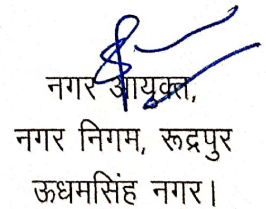 नगर आयुक्त,
नगर निगम, रूद्रपुर
ऊधमसिंह नगर।